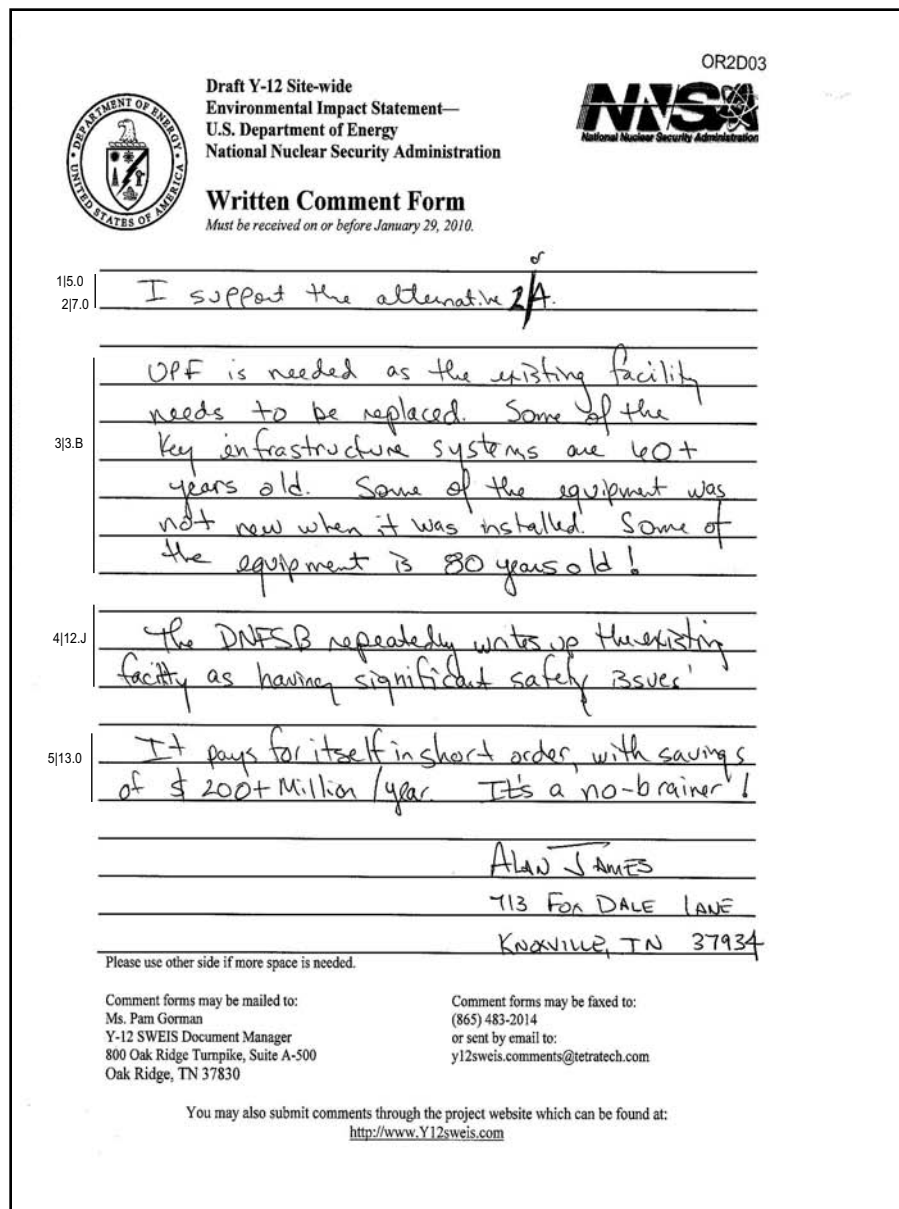 OR2D03
DEPARTMENT OF ENERGY
UNITED STATES OF AMERICA
Draft Y-12 Site-wide
Environmental Impact Statement—
U.S. Department of Energy
National Nuclear Security Administration
NNSA
National Nuclear Security Administration
Written Comment Form
Must be received on or before January 29, 2010.
or
1|5.0
2|7.0
I support the alternative 2/4.
UPF is needed as the existing facility
needs to be replaced. Some of the
3|3.B
key infrastructure systems are 60+
years old. Some of the equipment was
not new when it was installed. Some of
the equipment is 80 years old!
4|12.J
The DNFSB repeatedly writes up the existing
facility as having significant safety issues!
5|13.0
It pays for itself in short order, with savings
of $200+ Million/year. It's a no-brainer!
Alan James
713 Fox Dale Lane
Knoxville, TN 37934
Please use other side if more space is needed.
Comment forms may be mailed to:
Ms. Pam Gorman
Y-12 SWEIS Document Manager
800 Oak Ridge Turnpike, Suite A-500
Oak Ridge, TN 37830
Comment forms may be faxed to:
(865) 483-2014
or sent by email to:
y12sweis.comments@tetratech.com
You may also submit comments through the project website which can be found at:
http://www.Y12sweis.com